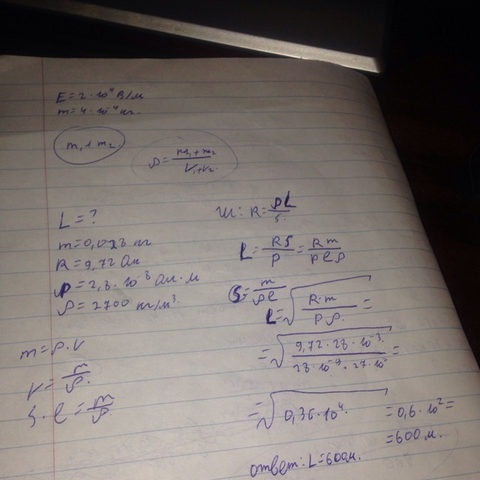 E = 2·10⁴ В/м
m = 4·10⁻⁴ кг.
m₁ + m₂
ρ = (m₁+m₂)/(V₁+V₂)
L = ?
m = 0,028 кг
R = 9,72 Ом
ρ = 2,8·10⁻⁸ Ом·м
ρ = 2700 кг/м³
m = ρ·V
V = m/ρ.
S·l = m/ρ.
R = ρL/S.
L = RS/ρ = Rm/ρlρ
S = m/ρl
L = √(R·m/ρ·ρ.) =
= √(9,72·28·10⁻³/28·10⁻⁹·27·10²) =
= √(0,36·10⁴. = 0,6·10² =
= 600 м.
ответ: L = 600м.